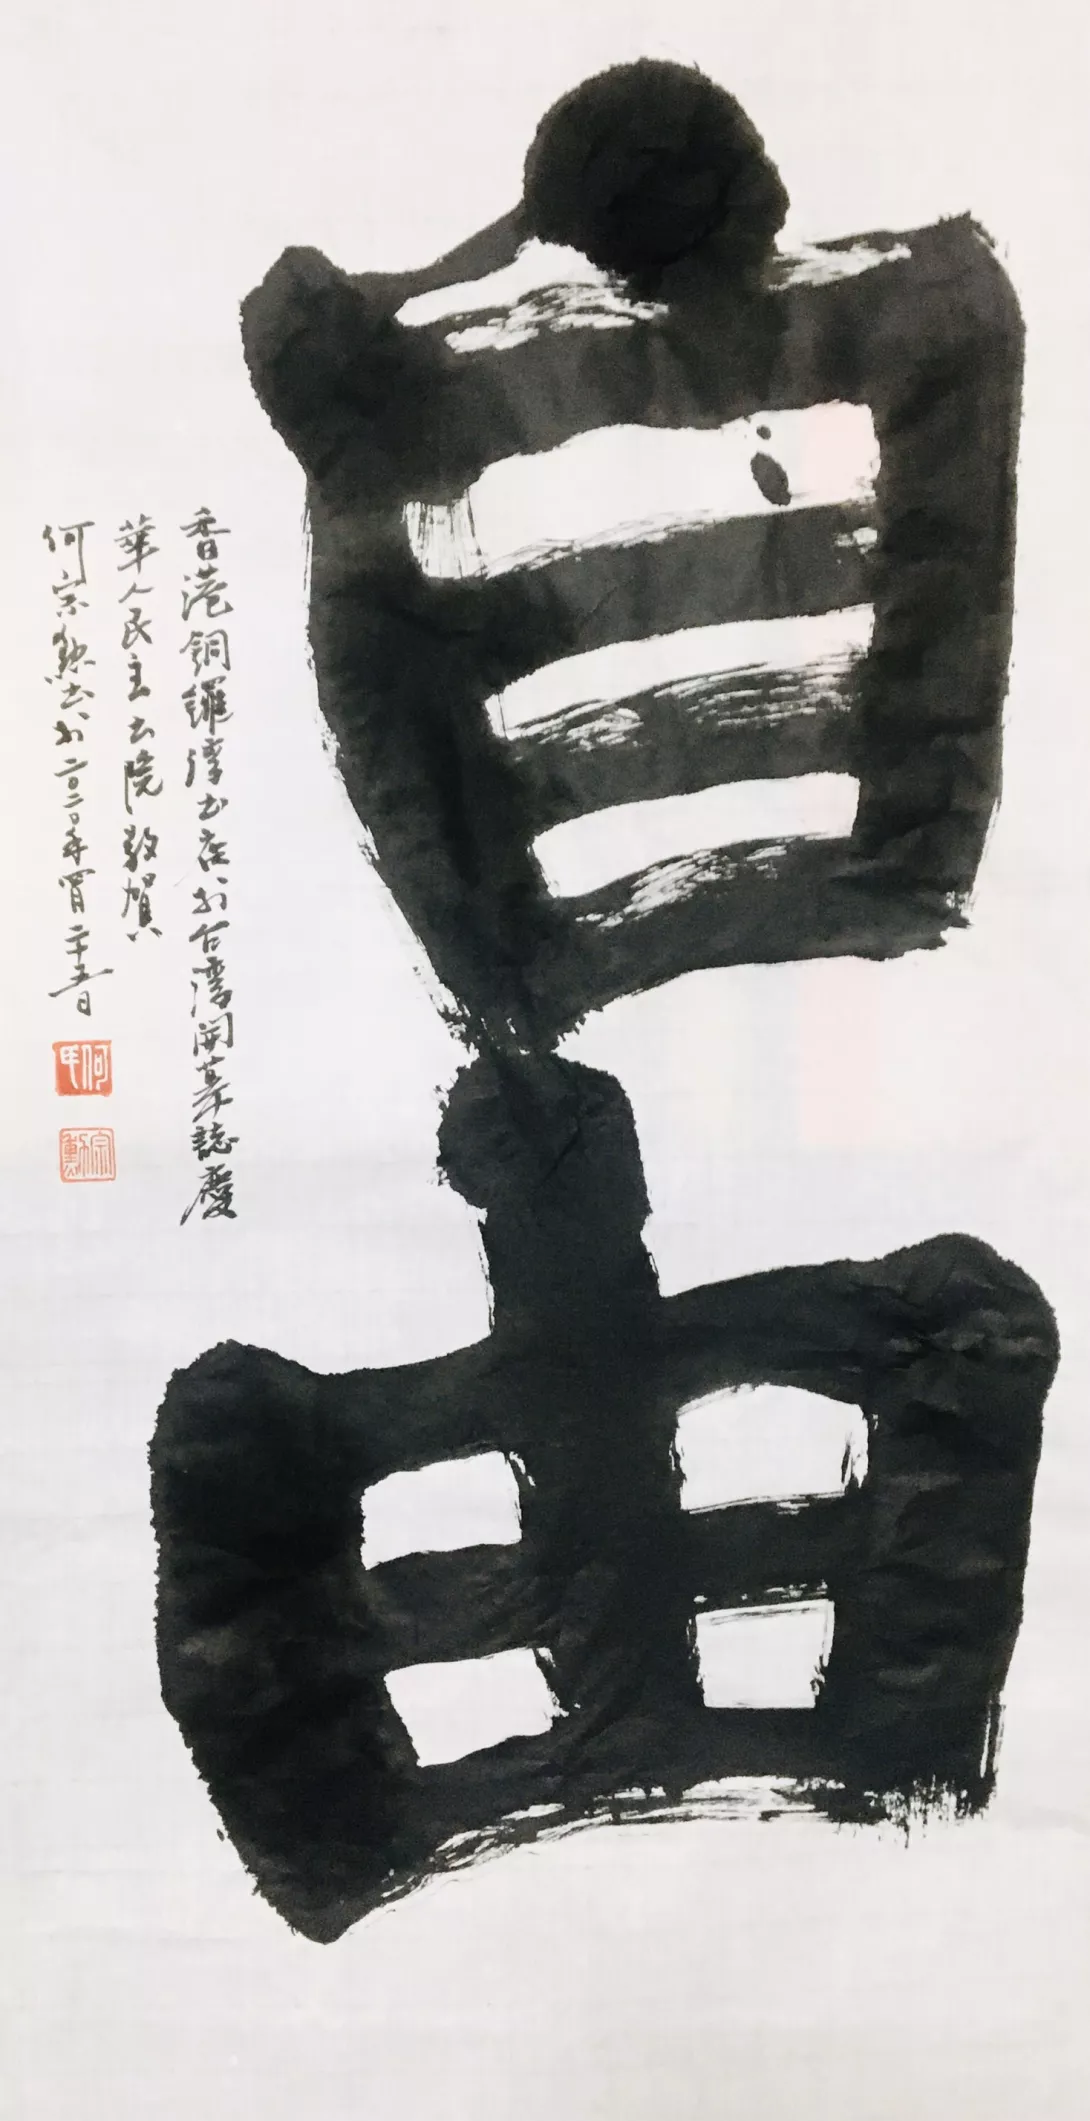 自由
香港銅鑼灣書店於台灣開幕誌慶
華人民主書院敬賀
何宗勳書於二〇二〇年四月二十五日
何氏
宗勳